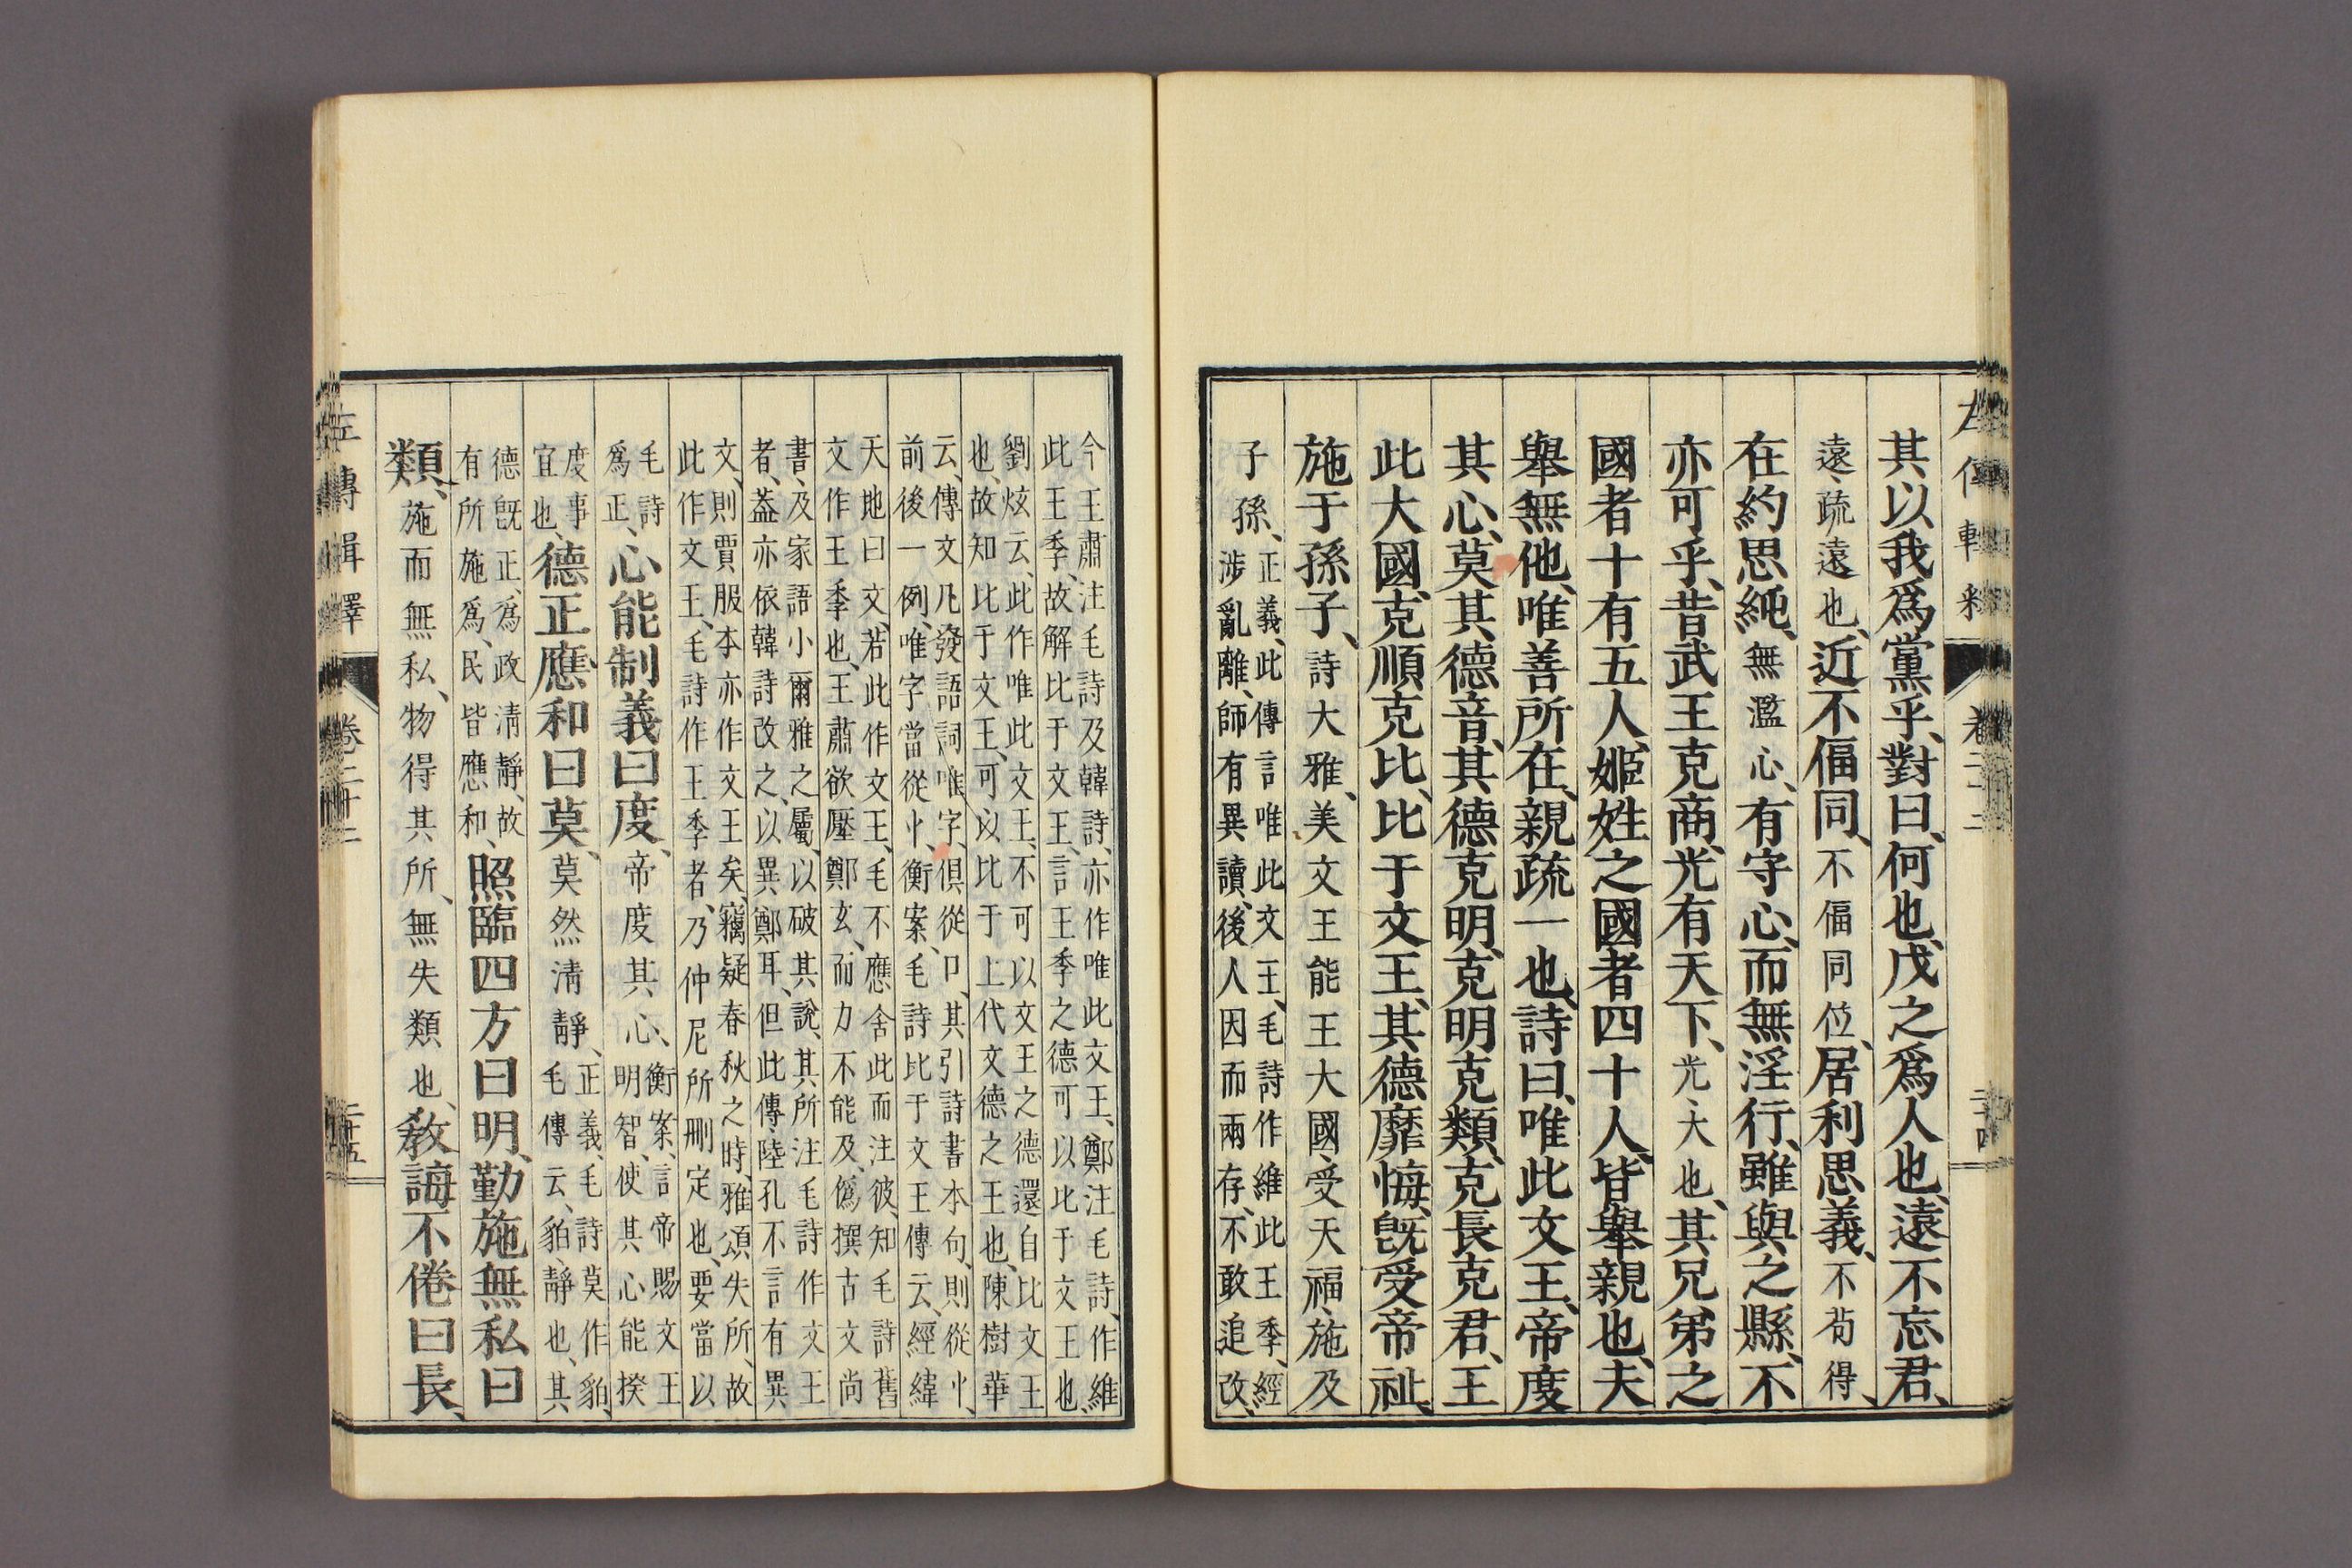 其以我爲黨乎、對曰、何也、戊之爲人也、遠不忘君、
遠、疏遠也、近不偪同、不偪同位、居利思義、不茍得、
在約思純、無濫心、有守心、而無淫行、雖與之縣、不
亦可乎、昔武王克商、光有天下、光、大也、其兄弟之
國者十有五人、姬姓之國者四十人、皆舉親也、夫
舉無他、唯善所在、親疏一也、詩曰、唯此文王、帝度
其心、莫其德音、其德克明、克明克類、克長克君、王
此大國、克順克比、比于文王、其德靡悔、旣受帝祉、
施于孫子、詩大雅、美文王能王大國、受天福、施及
子孫、正義、此傳言唯此文王、毛詩作維此王季、經
涉亂離、師有異讀、後人因而兩存、不敢追改、
今王肅注毛詩及韓詩、亦作唯此文王、鄭注毛詩、作維
此王季、故解比于文王、言王季之德可以比于文王也、
劉炫云、此作唯此文王、不可以文王之德還自比文王
也、故知比于文王、可以比于上代文德之王也、陳樹華
云、傳文凡發語詞唯字、俱從口、其引詩書本句、則從忄、
前後一例、唯字當從忄、衡案、毛詩比于文王傳云、經緯
天地曰文、若此作文王、毛不應舍此而注彼、知毛詩舊
文作王季也、王肅欲壓鄭玄、而力不能及、僞撰古文尚
書、及家語小爾雅之屬、以破其說、其所注毛詩作文王
者、葢亦依韓詩改之、以異鄭耳、但此傳、陸孔不言有異
文、則賈服本亦作文王矣、竊疑春秋之時、雅頌失所、故
此作文王、毛詩作王季者、乃仲尼所刪定也、要當以
毛詩爲正、心能制義曰度、帝度其心、衡案、言帝賜文王
明智、使其心能揆
度事宜也、德正應和曰莫、莫然淸靜、正義、毛詩莫作貊、
毛傳云、貊、靜也、其
德旣正、爲政淸靜、故
有所施爲、民皆應和、照臨四方曰明、勤施無私曰
類、施而無私、物得其所、無失類也、敎誨不倦曰長、
左傳輯釋 卷二十二 二十五